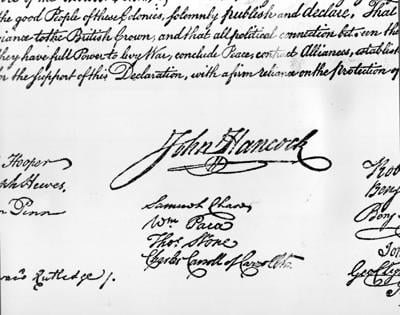 the good People of these Colonies, solemnly publish and declare, That
to the British Crown, and that all political connection between the
they have full Power to levy War, conclude Peace, contract Alliances, establish
for the support of this Declaration, with a firm reliance on the Protection of
John Hancock
Hooper
Hewes,
Penn
Samuel Chase
Wm. Paca
Thos. Stone
Charles Carroll of Carrollton
Rutledge /.
Rob
Benj
Benj
Jo
Geo